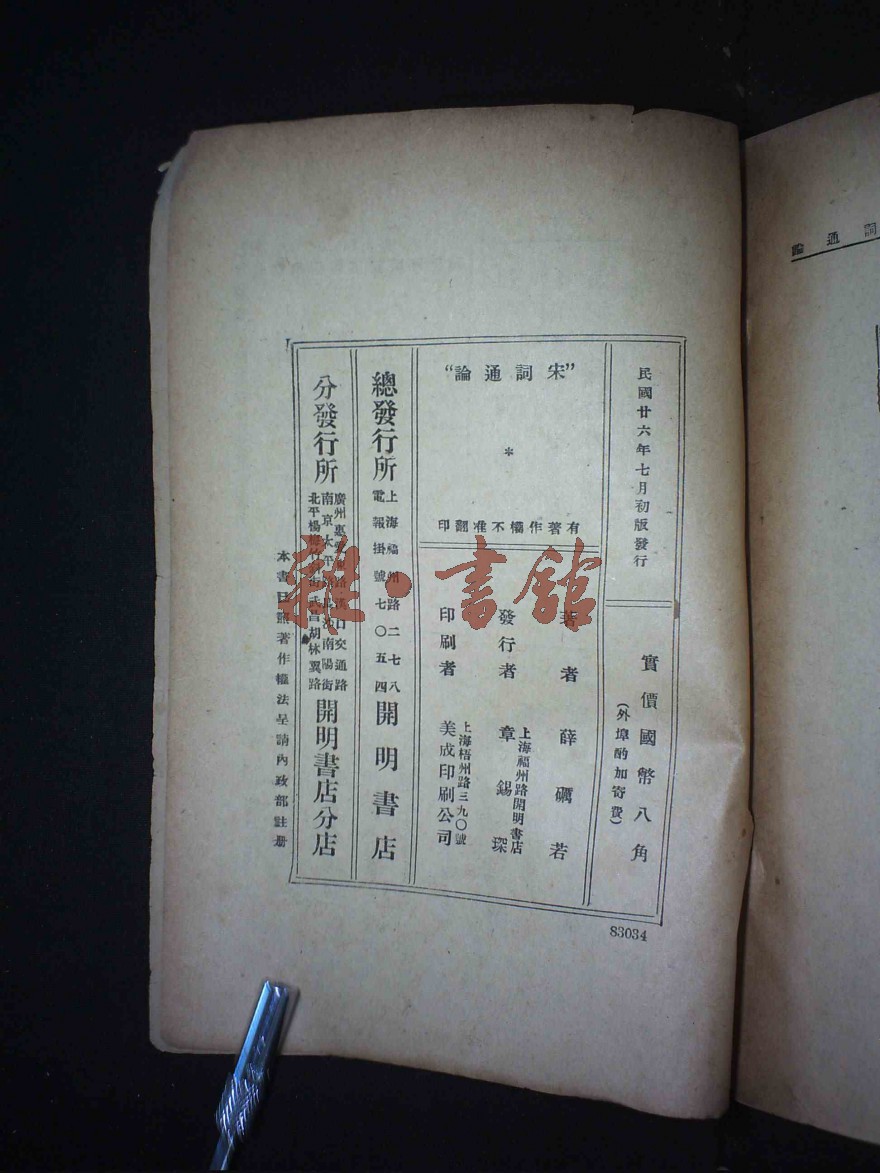 民國廿六年七月初版發行
實價國幣八角
(外埠酌加寄費)
"宋詞通論"
*
有著作權不准翻印
著者 薛礪若
發行者 章錫琛
上海福州路開明書店
印刷者 美成印刷公司
上海梧州路三九〇號
總發行所
上海福州路二七八
電報掛號七〇五四
開明書店
分發行所
廣州惠 東路漢口交通路
南京太平 南陽街
北平楊梅竹 街武昌胡林翼路
開明書店分店
本書已照著作權法呈請內政部註册
83034
詞通論
雜·書館